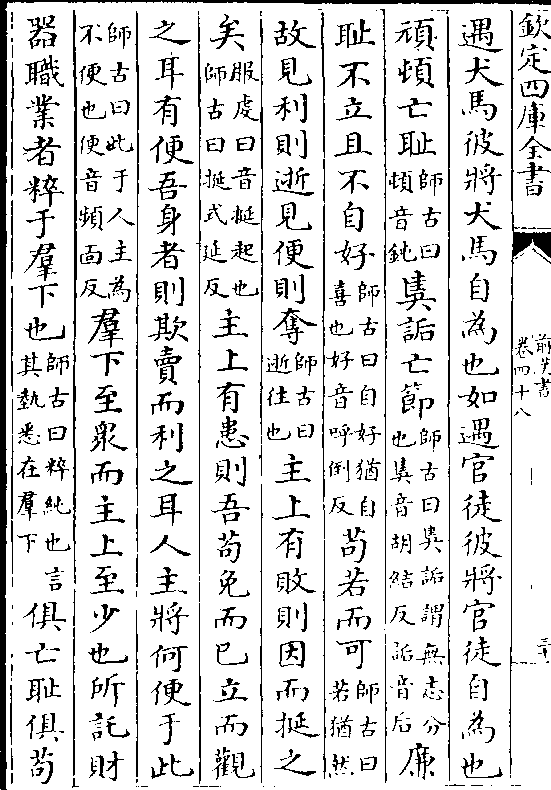 欽定四庫全書
前漢書
卷四十八
三十
遇犬馬彼將犬馬自為也如遇官徒彼將官徒自為也
頑頓亡耻師古曰頓音鈍㚖詬亡節師古曰㚖詬謂無志分也㚖音胡結反詬音后廉
耻不立且不自好師古曰自好猶自喜也好音呼倒反苟若而可師古曰若猶然
故見利則逝見便則奪師古曰逝往也主上有敗則因而挻之
矣服虔曰音挻起也師古曰挻式延反主上有患則吾苟免而已立而觀
之耳有便吾身者則欺賣而利之耳人主將何便于此
師古曰此于人主為不便也便音頻面反羣下至衆而主上至少也所託財
器職業者粹于羣下也師古曰粹純也言其埶悉在羣下俱亡耻俱苟